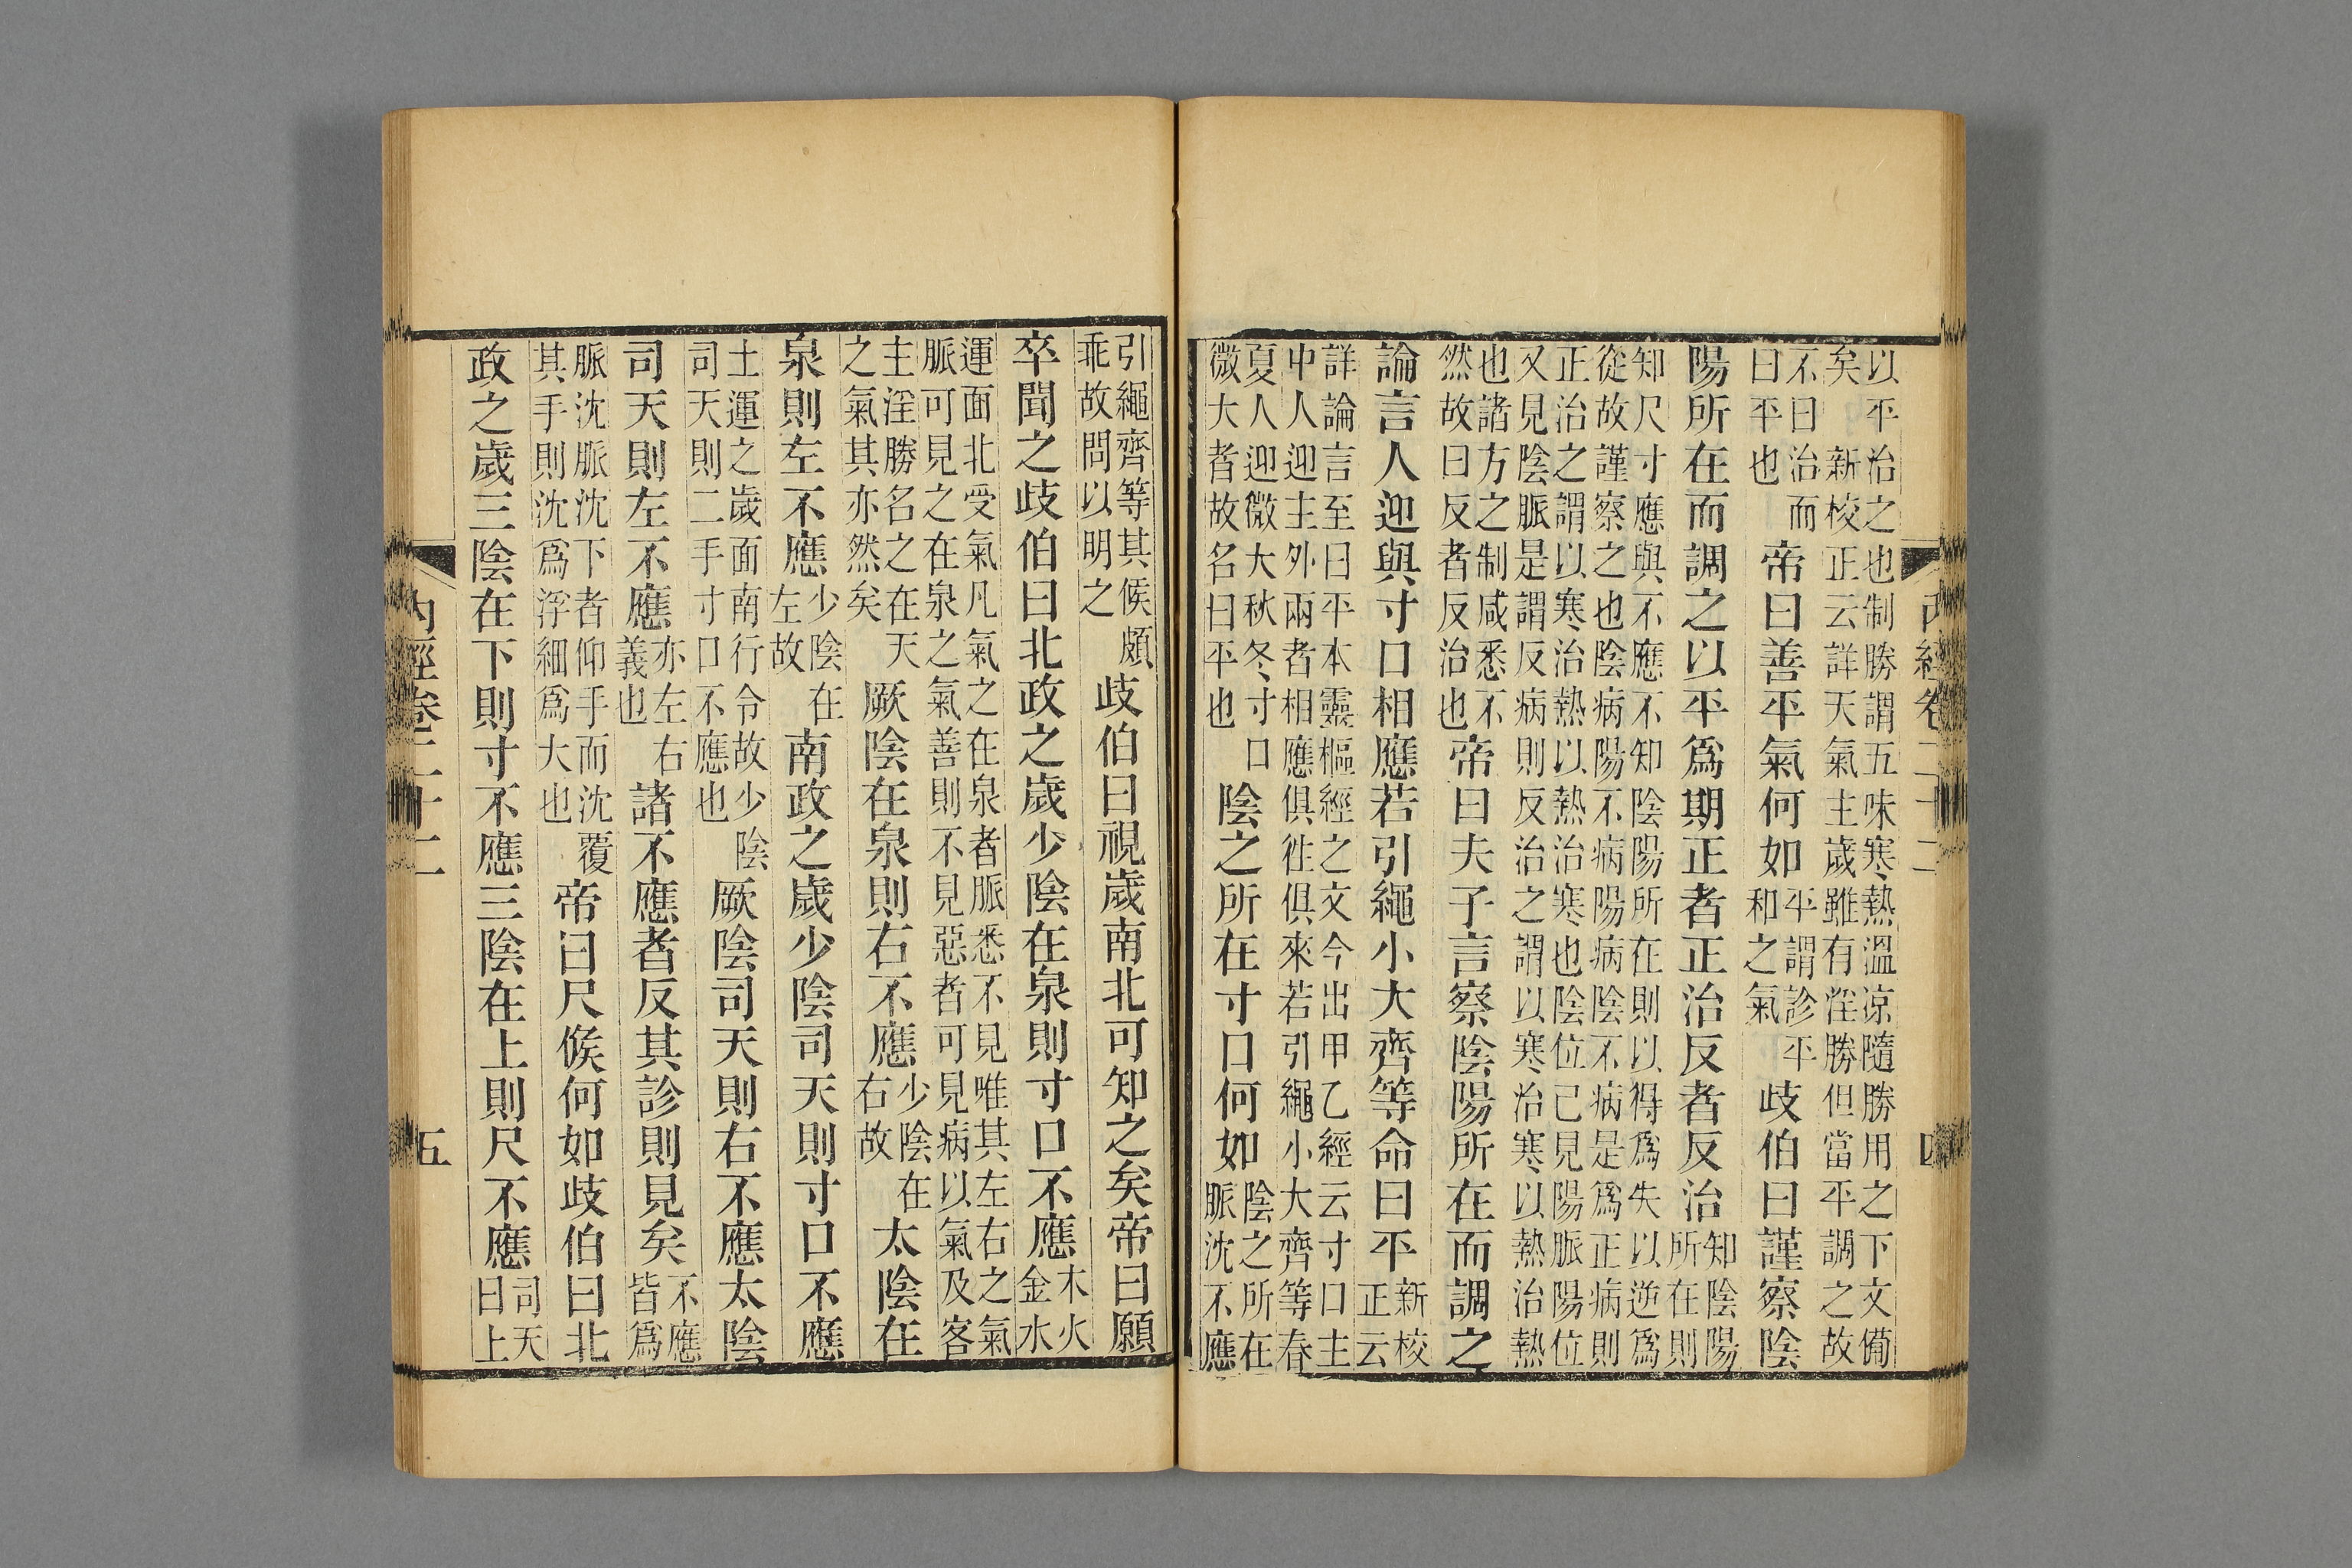 內經卷二十二 四
以平治之也制勝謂五味寒熱溫涼隨勝用之下文備
矣　新校正云詳天氣主歲雖有淫勝但當平調之故
不曰治而曰平也帝曰善平氣何如平謂診平和之氣歧伯曰謹察陰
陽所在而調之以平爲期正者正治反者反治知陰陽所在則
知尺寸應與不應不知陰陽所在則以得爲失以逆爲
從故謹察之也陰病陽不病陽病陰不病是爲正病則
正治之謂以寒治熱以熱治寒也陰位已見陽脈陽位
又見陰脈是謂反病則反治之謂以寒治寒以熱治熱
也諸方之制咸悉不然故曰反者反治也帝曰夫子言察陰陽所在而調之
論言人迎與寸口相應若引繩小大齊等命曰平新校正云
詳論言至曰平本靈樞經之文今出甲乙經云寸口主
中人迎主外兩者相應俱徃俱來若引繩小大齊等春
夏人迎微大秋冬寸口微大者故名曰平也陰之所在寸口何如陰之所在脈沈不應
引繩齊等其候頗乖故問以明之歧伯曰視歲南北可知之矣帝曰願
卒聞之歧伯曰北政之歲少陰在泉則寸口不應木火金水
運面北受氣凡氣之在泉者脈悉不見唯其左右之氣
脈可見之在泉之氣善則不見惡者可見病以氣及客
主淫勝名之在天之氣其亦然矣厥陰在泉則右不應少陰在右故太陰在
泉則左不應少陰在左故南政之歲少陰司天則寸口不應
土運之歲面南行令故少陰司天則二手寸口不應也厥陰司天則右不應太陰
司天則左不應亦左右義也諸不應者反其診則見矣不應皆爲
脈沈脈沈下者仰手而沈覆其手則沈爲浮細爲大也帝曰尺候何如歧伯曰北
政之歲三陰在下則寸不應三陰在上則尺不應司天曰上
內經卷二十二 五